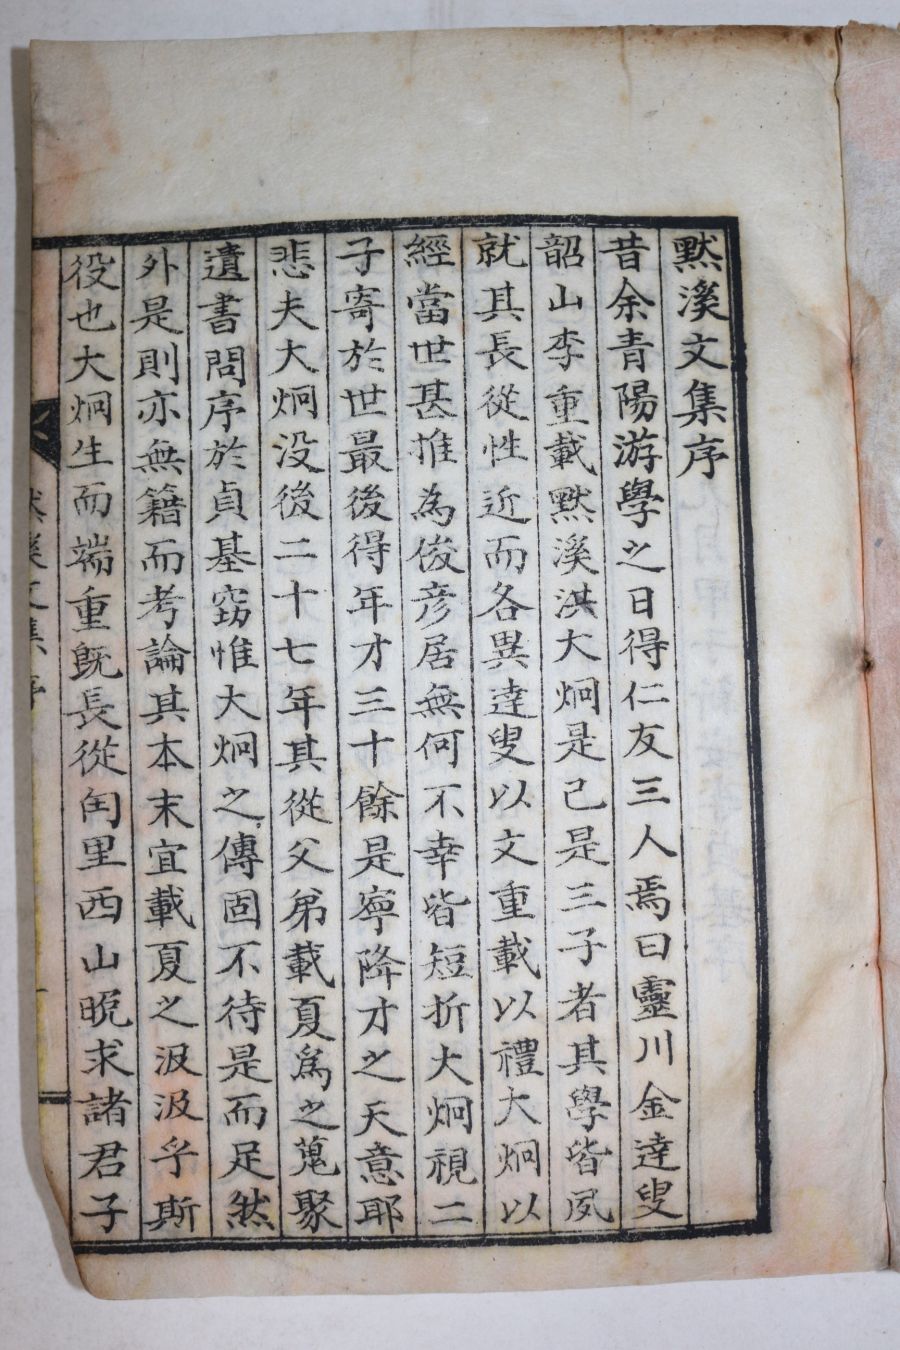 默溪文集序
昔余青陽游學之日得仁友三人焉曰靈川金達叟
韶山李重載默溪洪大炯是已是三子者其學皆夙
就其長從性近而各異達叟以文重載以禮大炯以
經當世甚推為俊彦居無何不幸皆短折大炯視二
子寄於世最後得年才三十餘是寧降才之天意耶
悲夫大炯没後二十七年其從父弟載夏爲之蒐聚
遺書問序於貞基竊惟大炯之傳固不待是而足然
外是則亦無籍而考論其本末宜載夏之汲汲乎斯
役也大炯生而端重既長從閏里西山晩求諸君子
默溪文集 序